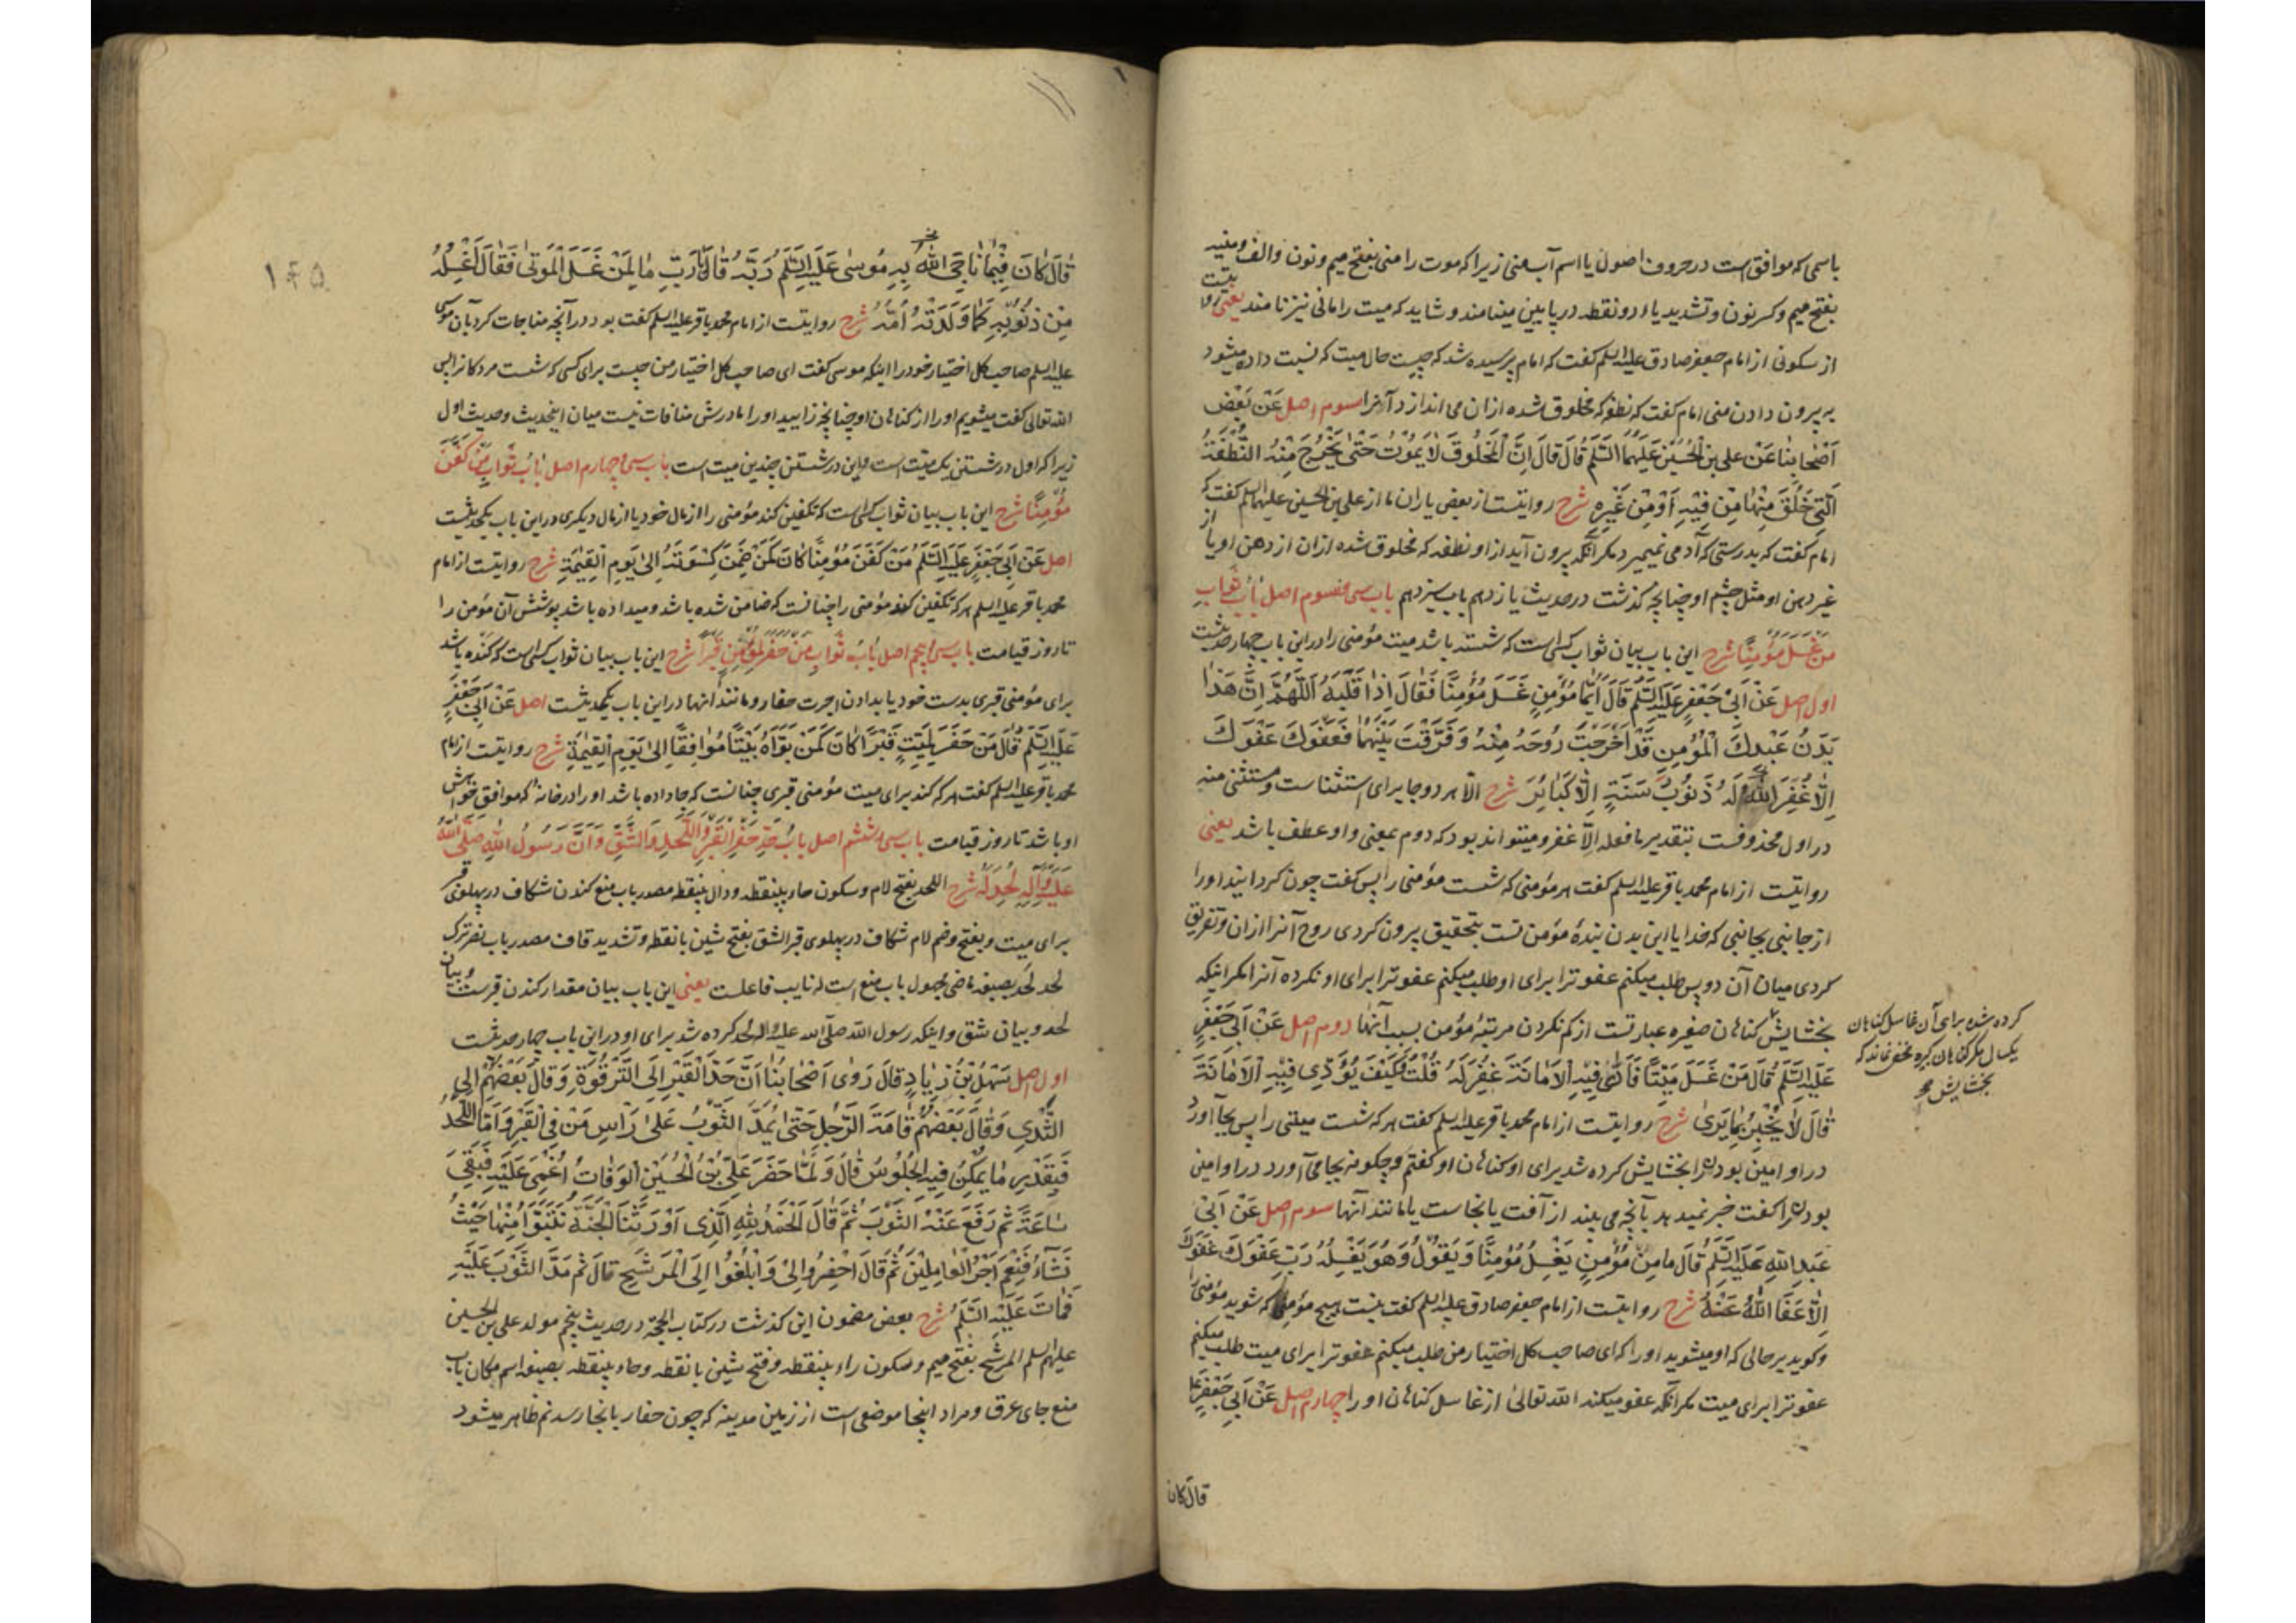 باسمی که موافق است در حروف اصول با اسم آب منی زیرا که موت را منی بفتح میم و نون و الف و منیه
بفتح میم و کسر نون و تشدید یاء دو نقطه در پایین مینامند و شاید که میت را مانی نیز نامند یعنی روایتست
از سکونی از امام جعفر صادق علیه السلم گفت که امام پرسیده شد که چیست حال میت که نسبت داده میشود
به بیرون دادن منی امام گفت که نطفه که مخلوق شده ازان می اندازد آنرا سوم اصل عَنْ بَعْضِ
اَصْحابِنا عَنْ علی بنِ الْحُسَیْنِ عَلَیْهِمَا السَّلَمُ قَالَ قَالَ اِنَّ الْمَخْلُوقَ لَا یَمُوْتُ حَتّٰی یَخْرُجَ مِنْهُ النُّطْفَةُ
الَّتِی خُلِقَ مِنْهَا مِنْ فِیْهِ اَوْ مِنْ غَیْرِهِ شرح روایتست از بعض یاران ما از علی بن الحسین علیهما السلم گفت که
امام گفت که بدرستی که آدمی نمیمیرد مگر آنکه بیرون آید از او نطفه که مخلوق شده ازان از دهن او یا از
غیر دهن او مثل چشم او چنانچه گذشت در حدیث یازدهم باب سیزدهم باب سی و سوم اصل بَابُ ثَوَابِ
مَنْ غَسَّلَ مُؤْمِنًا شرح این باب بیان ثواب کسی است که شسته باشد میت مؤمنی را در این باب چهار حدیثست
اول اصل عَنْ اَبِیْ جَعْفَرٍ عَلَیْهِ السَّلَمُ قَالَ اَیُّمَا مُؤْمِنٍ غَسَّلَ مُؤْمِنًا فَقَالَ اِذَا قَلَّبَهُ اَللّٰهُمَّ اِنَّ هَذَا
بَدَنُ عَبْدِكَ الْمُؤْمِنِ قَدْ اَخْرَجْتَ رُوْحَهُ مِنْهُ وَ فَرَّقْتَ بَیْنَهُمَا فَعَفْوَكَ عَفْوَكَ
اِلَّا غَفَرَ اللّٰهُ لَهُ ذُنُوْبَ سَنَةٍ اِلَّا الْكَبَائِرَ شرح الّا هر دو جا برای استثنا است و مستثنی منه
در اول محذوفست بتقدیر ما فعله الّا غفر و میتواند بود که دوم بمعنی واو عطف باشد یعنی
روایتست از امام محمد باقر علیه السلم گفت هر مؤمنی که شست مؤمنی را پس گفت چون گردانید او را
از جانبی بجانبی که خدایا این بدن بندهٔ مؤمن تست بتحقیق بیرون کردی روح آنرا ازان و تفریق
کردی میان آن دو پس طلب میکنم عفو ترا برای او طلب میکنم عفو ترا برای او نکرده آنرا مگر اینکه
بخشایش گناهان صغیره عبارتست از کم نکردن مرتبهٔ مؤمن بسبب آنها دوم اصل عَنْ اَبِیْ جَعْفَرٍ
عَلَیْهِ السَّلَمُ قَالَ مَنْ غَسَّلَ مَیِّتًا فَاَدّٰی فِیْهِ الْاَمَانَةَ غُفِرَ لَهُ قُلْتُ وَ كَیْفَ یُؤَدِّی فِیْهِ الْاَمَانَةَ
قَالَ لَا یُخْبِرُ بِمَا یَرٰی شرح روایتست از امام محمد باقر علیه السلم گفت هر که شست میتی را پس بجا آورد
در او امین بودن را بخشایش کرده شد برای او گناهان او گفتم و چگونه بجا می آورد در او امین
بودن را گفت خبر نمیدهد بآنچه می بیند از آفت یا نجاست یا مانند آنها سوم اصل عَنْ اَبِیْ
عَبْدِ اللّٰهِ عَلَیْهِ السَّلَمُ قَالَ مَا مِنْ مُؤْمِنٍ یَغْسِلُ مُؤْمِنًا وَ یَقُوْلُ وَ هُوَ یَغْسِلُهُ رَبِّ عَفْوَكَ عَفْوَكَ
اِلَّا عَفَا اللّٰهُ عَنْهُ شرح روایتست از امام جعفر صادق علیه السلم گفت نیست هیچ مؤمنی که شوید مؤمنی را
و گوید بر حالی که او میشوید او را که ای صاحب کل اختیار من طلب میکنم عفو ترا برای میت طلب میکنم
عفو ترا برای میت مگر آنکه عفو میکند الله تعالی از غاسل گناهان او را چهارم اصل عَنْ اَبِیْ جَعْفَرٍ ع
کرده شده برای آن غاسل گناهان
یکسال مگر گناهان کبیره مخفی نماند که
بخشایش
قال کان
١٤٥
قَالَ كَانَ فِیْمَا نَاجَی اللّٰهَ بِهِ مُوسٰی عَلَیْهِ السَّلَمُ رَبَّهُ قَالَ یَا رَبِّ مَا لِمَنْ غَسَّلَ الْمَوْتٰی فَقَالَ اَغْسِلُهُ
مِنْ ذُنُوْبِهِ كَمَا وَلَدَتْهُ اُمُّهُ شرح روایتست از امام محمد باقر علیه السلم گفت بود در آنچه مناجات کرد بآن موسی
علیه السلم صاحب کل اختیار خود را اینکه موسی گفت ای صاحب کل اختیار من چیست برای کسی که شست مردگان را پس
الله تعالی گفت میشویم او را از گناهان او چنانچه زایید او را مادرش منافات نیست میان اینحدیث و حدیث اول
زیرا که اول در شستن یک میّت است و این در شستن چندین میت است باب سی و چهارم اصل بَابُ ثَوَابِ مَنْ كَفَّنَ
مُؤْمِنًا شرح این باب بیان ثواب کسی است که تکفین کند مؤمنی را از مال خود یا از مال دیگری در این باب یکحدیثست
اصل عَنْ اَبِیْ جَعْفَرٍ عَلَیْهِ السَّلَمُ مَنْ كَفَّنَ مُؤْمِنًا كَانَ كَمَنْ ضَمِنَ كِسْوَتَهُ اِلٰی یَوْمِ الْقِیٰمَةِ شرح روایتست از امام
محمد باقر علیه السلم هر که تکفین کند مؤمنی را چنانست که ضامن شده باشد و میداده باشد پوشش آن مؤمن را
تا روز قیامت باب سی و پنجم اصل بَابُ ثَوَابِ مَنْ حَفَرَ لِمُؤْمِنٍ قَبْرًا شرح این باب بیان ثواب کسی است که کنده باشد
برای مؤمنی قبری بدست خود یا بدادن اجرت حفار و مانند آنها در این باب یکحدیثست اصل عَنْ اَبِیْ جَعْفَرٍ
عَلَیْهِ السَّلَمُ قَالَ مَنْ حَفَرَ لِمَیِّتٍ قَبْرًا كَانَ كَمَنْ بَوَّاَهُ بَیْتًا مُوَافِقًا اِلٰی یَوْمِ الْقِیٰمَةِ شرح روایتست از امام
محمد باقر علیه السلم گفت هر که کند برای میت مؤمنی قبری چنانست که جا داده باشد او را در خانهٔ که موافق خواهش
او باشد تا روز قیامت باب سی و ششم اصل بَابُ حَدِّ حَفْرِ الْقَبْرِ وَ اللَّحْدِ وَ الشَّقِّ وَ اَنَّ رَسُوْلَ اللّٰهِ صَلَّی اللّٰهُ
عَلَیْهِ وَ آلِهِ لُحِدَ لَهُ شرح اللحد بفتح لام و سکون حاء بینقطه و دال بینقطه مصدر باب منع کندن شکاف در پهلوی قبر
برای میت و بفتح و ضم لام شکاف در پهلوی قبر الشق بفتح شین بانقطه و تشدید قاف مصدر باب نصر ترک
لحد لُحِدَ بصیغه ماضی مجهول باب منع است له نایب فاعلست یعنی این باب بیان مقدار کندن قبرست و بیان
لحد و بیان شق و اینکه رسول الله صلّی الله علیه و اله لحد کرده شد برای او در این باب چهار حدیثست
اول اصل سَهْلُ بْنُ زِیَادٍ قَالَ رَوٰی اَصْحَابُنَا اَنَّ حَدَّ الْقَبْرِ اِلَی التَّرْقُوَةِ وَ قَالَ بَعْضُهُمْ اِلَی
الثَّدْیِ وَ قَالَ بَعْضُهُمْ قَامَةَ الرَّجُلِ حَتّٰی یُمَدَّ الثَّوْبُ عَلٰی رَأْسِ مَنْ فِی الْقَبْرِ وَ اَمَّا اللَّحْدُ
فَبِقَدْرِ مَا یُمْكِنُ فِیْهِ الْجُلُوْسُ قَالَ وَ لَمَّا حَضَرَ عَلِیَّ بْنَ الْحُسَیْنِ الْوَفَاتُ اُغْمِیَ عَلَیْهِ فَبَقِیَ
سَاعَةً ثُمَّ رَفَعَ عَنْهُ الثَّوْبَ ثُمَّ قَالَ اَلْحَمْدُ لِلّٰهِ الَّذِی اَوْرَثَنَا الْجَنَّةَ نَتَبَوَّاُ مِنْهَا حَیْثُ
نَشَآءُ فَنِعْمَ اَجْرُ الْعَامِلِیْنَ ثُمَّ قَالَ احْفِرُوْا لِیْ وَ ابْلُغُوْا اِلَی الْمَرْشَحِ قَالَ ثُمَّ مَدَّ الثَّوْبَ عَلَیْهِ
فَمَاتَ عَلَیْهِ السَّلَمُ شرح بعض مضمون این گذشت در کتاب الحجّة در حدیث پنجم مولد علی بن الحسین
علیهم السلم المرشَح بفتح میم و سکون راء بینقطه و فتح شین بانقطه و حاء بینقطه بصیغه اسم مکان باب
منع جای عرق و مراد اینجا موضعی است از زمین مدینه که چون حفار بآنجا رسد نم ظاهر میشود